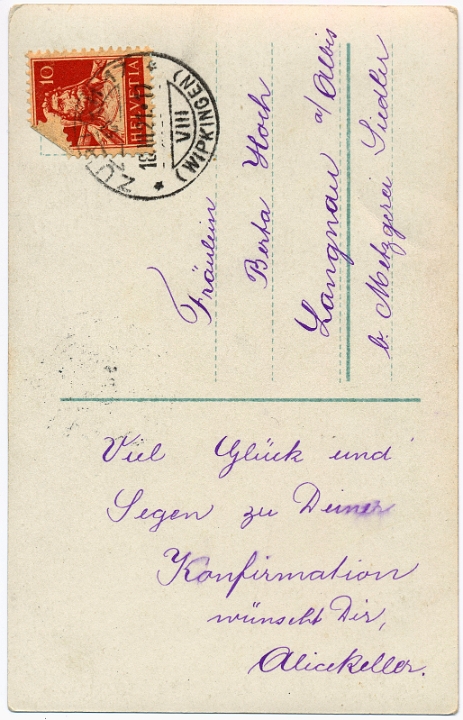 10
HELVETIA
VIII
(WIPKINGEN)
Fräulein
Berta Hoch
Langnau a/Albis
b. Metzgerei Siedler
Viel Glück und
Segen zu Deiner
Konfirmation
wünscht Dir,
Alice Keller.